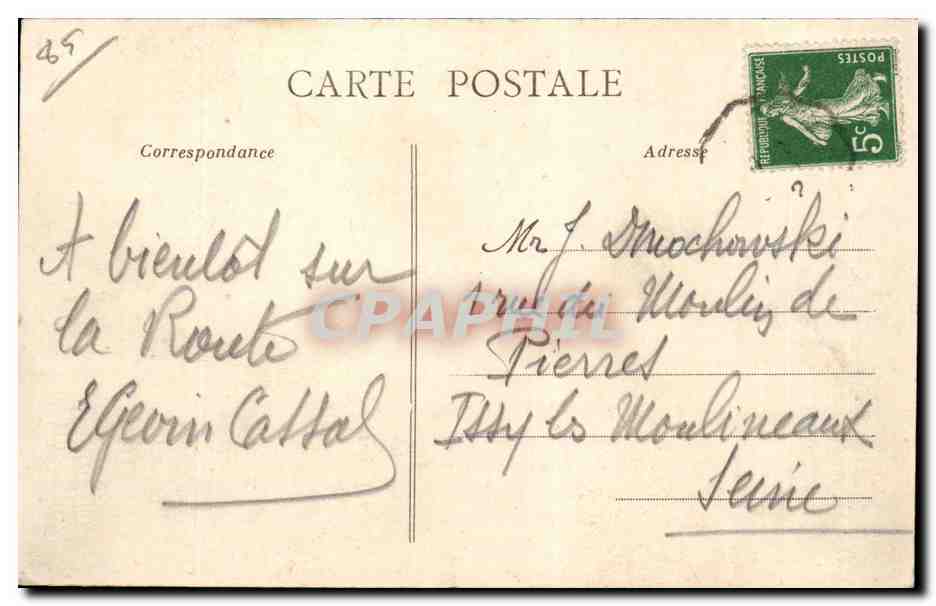 CARTE POSTALE
Correspondance
Adresse
RÉPUBLIQUE FRANÇAISE
POSTES
5c
A bientôt sur
la Route
EGevin Cassal
Mr J. Dmochowski
1 rue du Moulin de
Pierres
Issy les Moulineaux
Seine
CPAPHIL